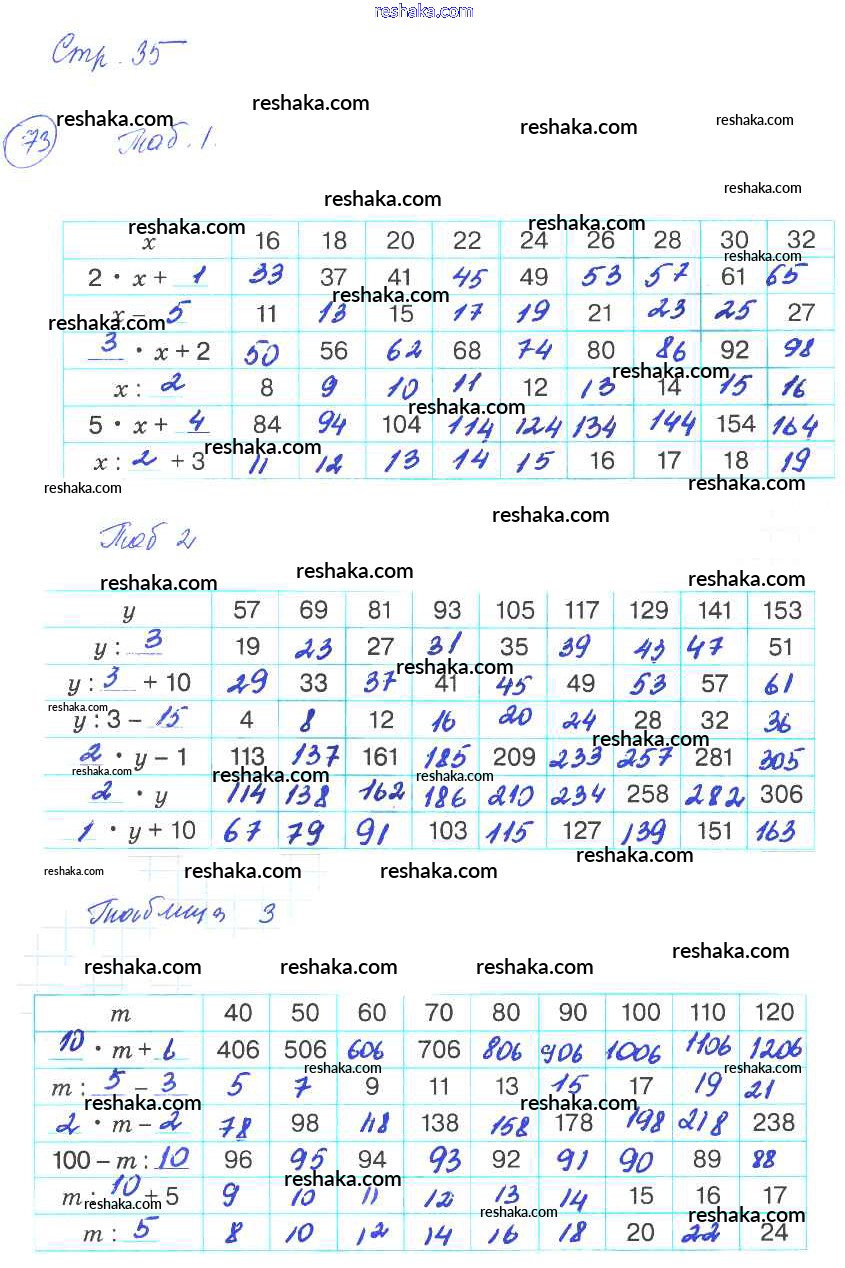 reshaka.com
Стр. 35
reshaka.com
reshaka.com reshaka.com reshaka.com
73 Таб. 1.
reshaka.com
reshaka.com
reshaka.com reshaka.com
x 16 18 20 22 24 26 28 30 32
reshaka.com
2 · x + 1 33 37 41 45 49 53 57 61 65
reshaka.com
x – 5 11 13 15 17 19 21 23 25 27
reshaka.com
3 · x + 2 50 56 62 68 74 80 86 92 98
reshaka.com
x : 2 8 9 10 11 12 13 14 15 16
reshaka.com
5 · x + 4 84 94 104 114 124 134 144 154 164
reshaka.com
x : 2 + 3 11 12 13 14 15 16 17 18 19
reshaka.com reshaka.com
reshaka.com
Таб 2
reshaka.com reshaka.com reshaka.com
y 57 69 81 93 105 117 129 141 153
y : 3 19 23 27 31 35 39 43 47 51
reshaka.com
y : 3 + 10 29 33 37 41 45 49 53 57 61
reshaka.com
y : 3 – 15 4 8 12 16 20 24 28 32 36
reshaka.com
2 · y – 1 113 137 161 185 209 233 257 281 305
reshaka.com reshaka.com reshaka.com
2 · y 114 138 162 186 210 234 258 282 306
1 · y + 10 67 79 91 103 115 127 139 151 163
reshaka.com
reshaka.com reshaka.com reshaka.com
Таблица 3
reshaka.com
reshaka.com reshaka.com reshaka.com
m 40 50 60 70 80 90 100 110 120
10 · m + 6 406 506 606 706 806 906 1006 1106 1206
reshaka.com reshaka.com
m : 5 – 3 5 7 9 11 13 15 17 19 21
reshaka.com reshaka.com
2 · m – 2 78 98 118 138 158 178 198 218 238
100 – m : 10 96 95 94 93 92 91 90 89 88
reshaka.com
m : 10 + 5 9 10 11 12 13 14 15 16 17
reshaka.com reshaka.com reshaka.com
m : 5 8 10 12 14 16 18 20 22 24